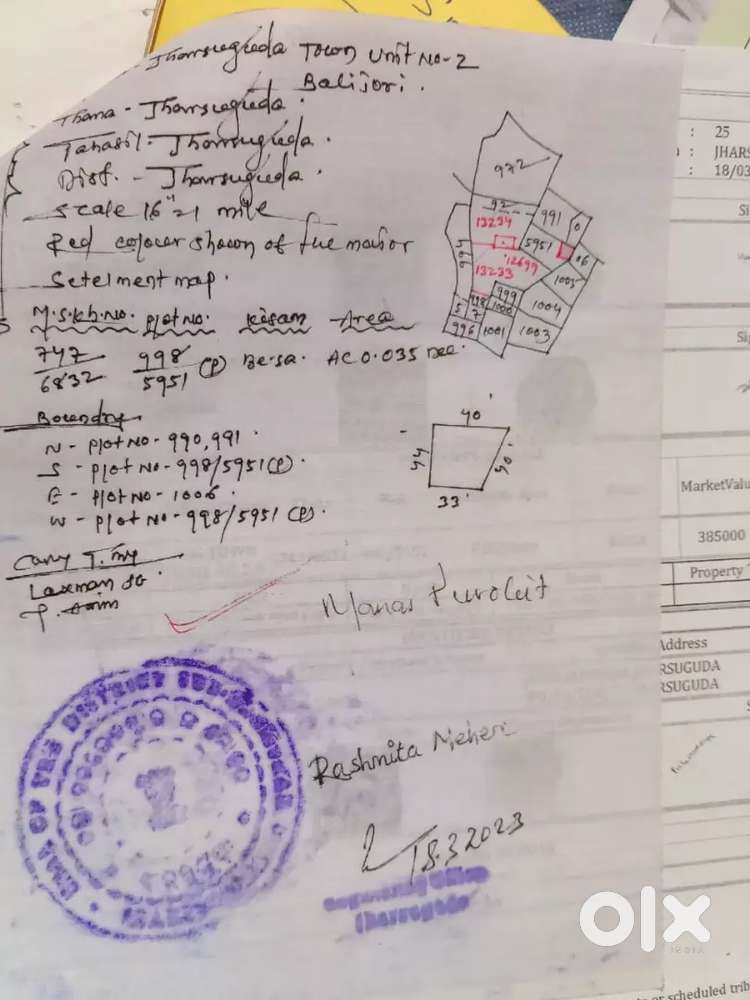 Jharsuguda Town Unit No-2
Balijori.
Thana - Jharsuguda.
Tahasil - Jharsuguda.
Dist. - Jharsuguda.
Scale 16"=1 mile
Red colour shown of the major
Setelment map.
M.S.kh.No. plot No. kisam Area
747/6832 998/5951 (P) Be.sa. AC 0.035 Dec.
Boundry
N - plot No - 990, 991.
S - plot No - 998/5951(P).
E - plot No - 1006.
W - plot No - 998/5951 (P).
Laxman
972
92
13234
991
5951
06
12699
13233
1005
999
998
1000
1004
7
5
996
1001
1003
40'
44
40'
33'
Manas Purohit
Rashmita Meher
18.3.2023
: 25
: JHARS
: 18/03
MarketValu
385000
Property
Address
RSUGUDA
RSUGUDA
or scheduled trib
olx
INDIA